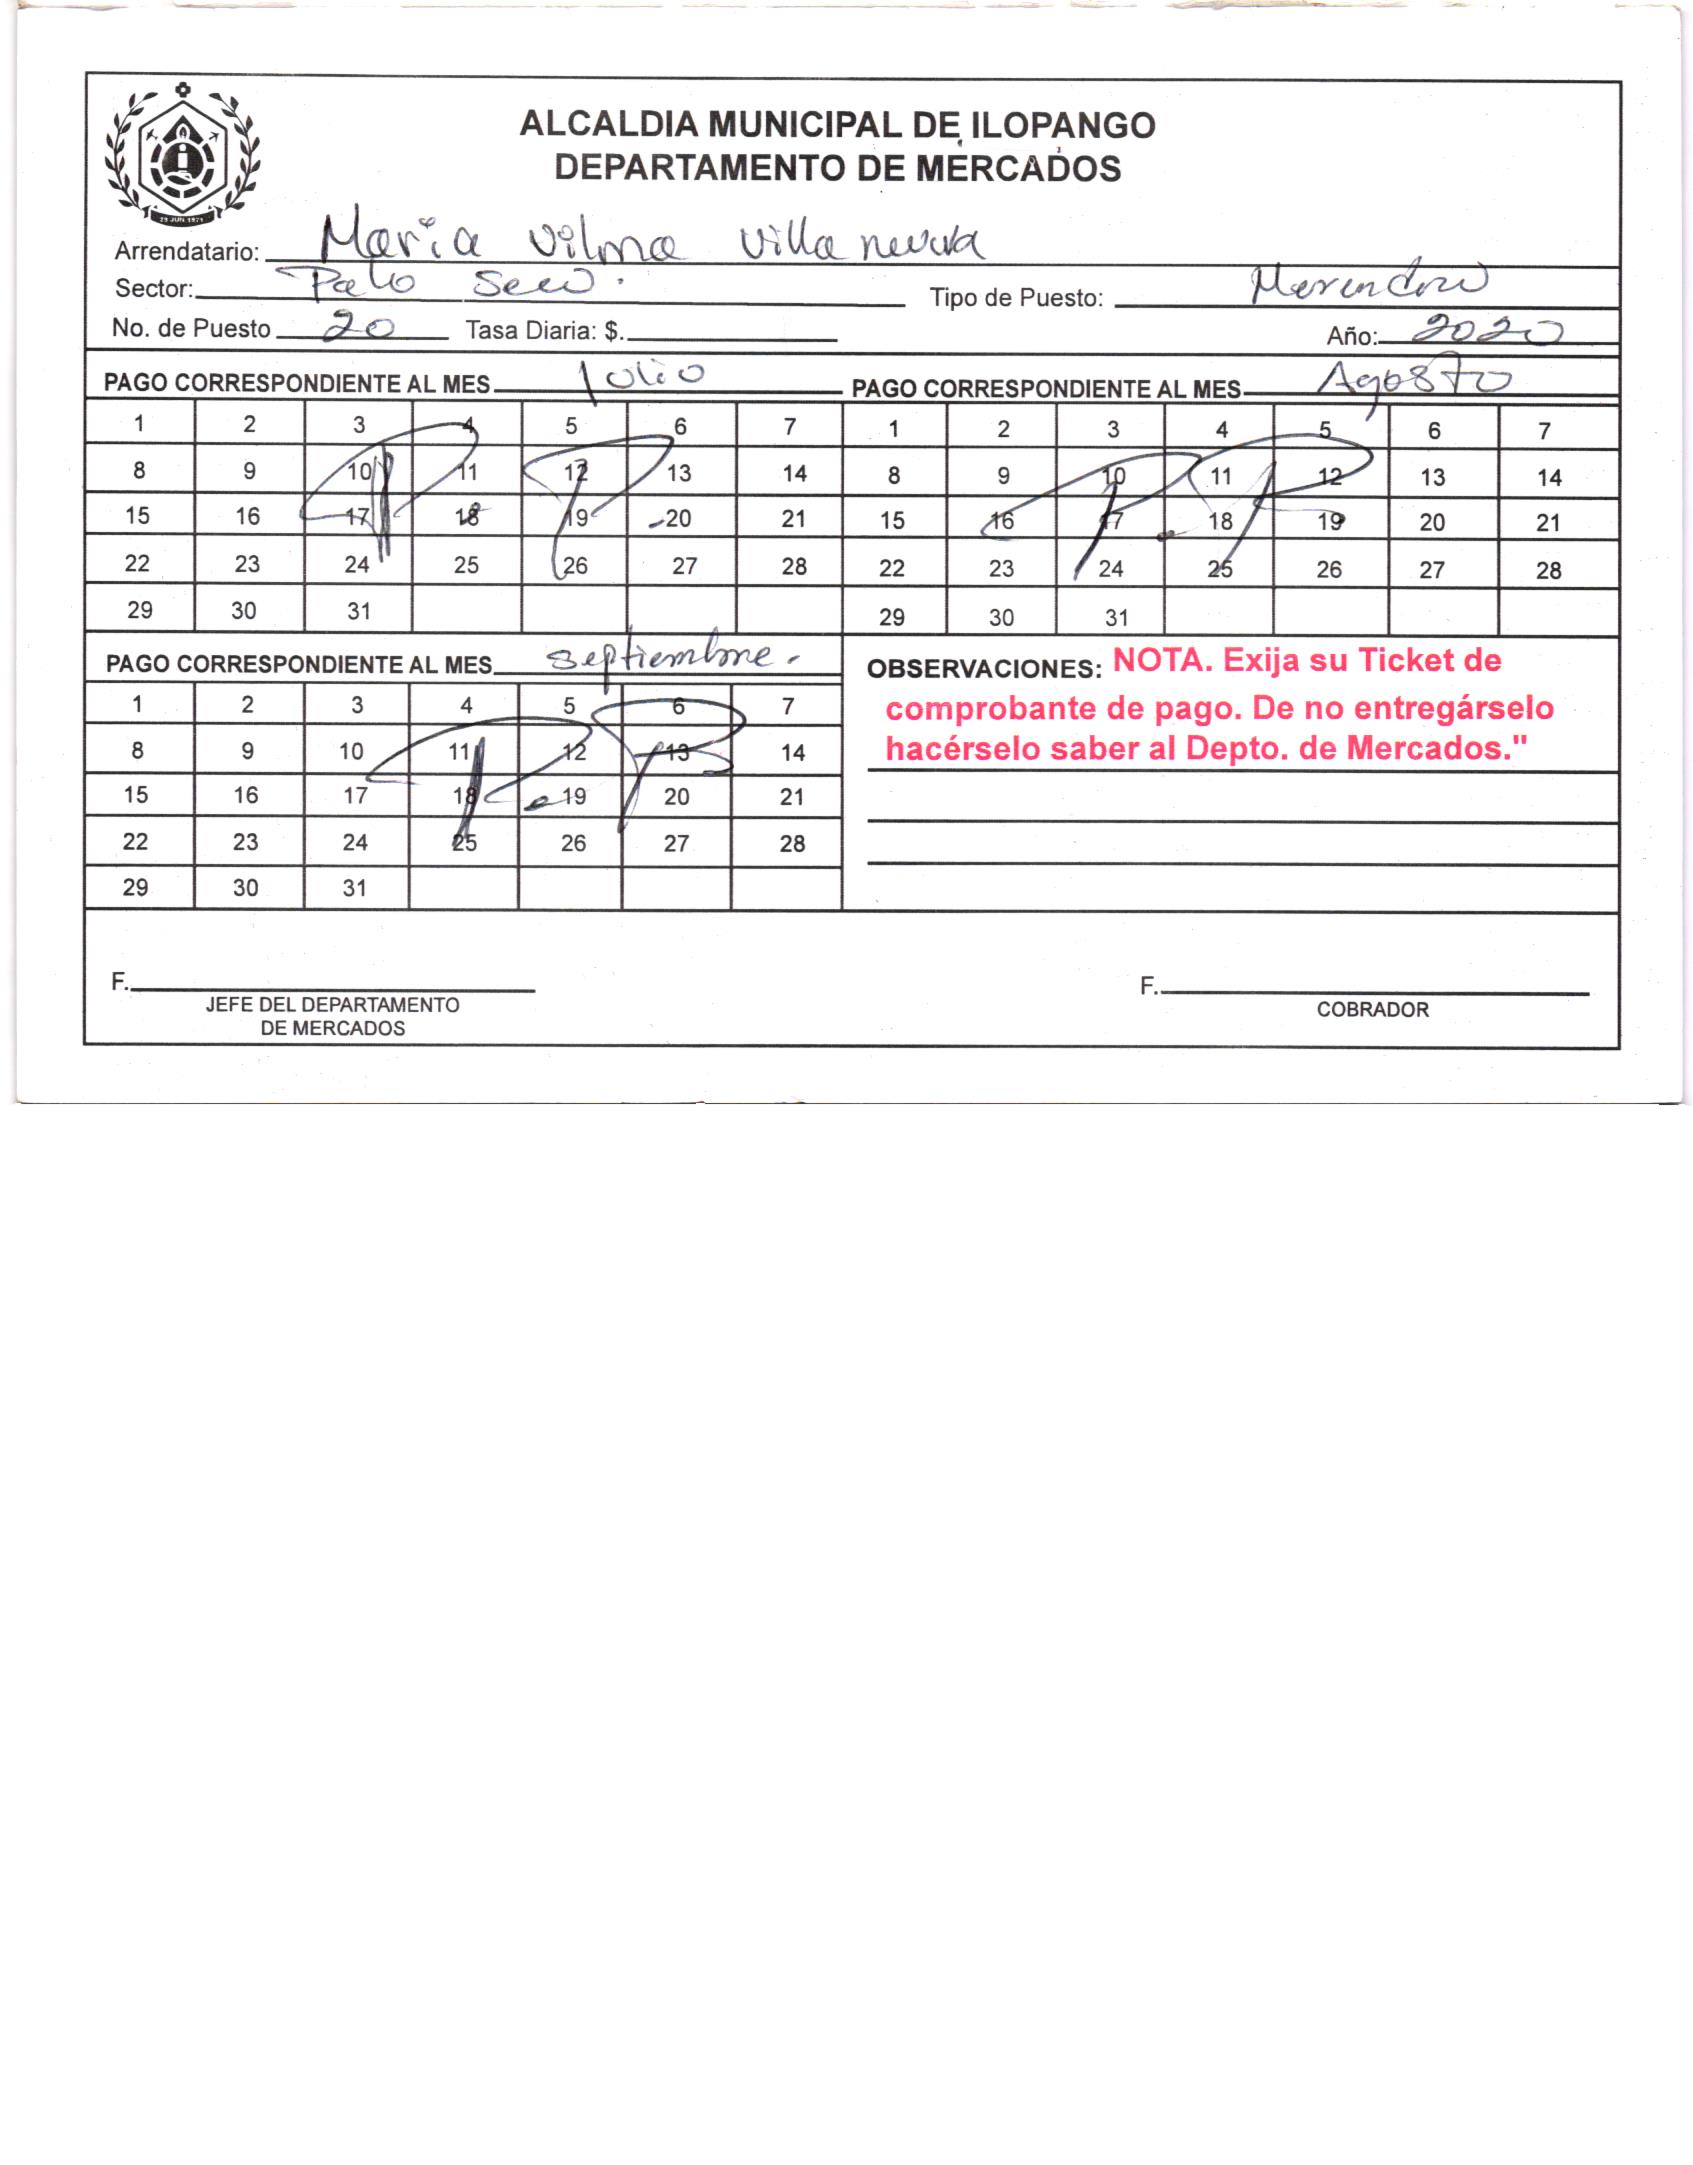 ALCALDIA MUNICIPAL DE ILOPANGO
DEPARTAMENTO DE MERCADOS
29 JUN 1971
Arrendatario: Maria Vilma Villanueva
Sector: Palo Seco. Tipo de Puesto:
No. de Puesto 20 Tasa Diaria: $. Año: 2020
PAGO CORRESPONDIENTE AL MES Julio PAGO CORRESPONDIENTE AL MES Agosto
1 2 3 4 5 6 7 1 2 3 4 5 6 7
8 9 10 11 12 13 14 8 9 10 11 12 13 14
15 16 17 18 19 20 21 15 16 17 18 19 20 21
22 23 24 25 26 27 28 22 23 24 25 26 27 28
29 30 31 29 30 31
P.P. P.P.
PAGO CORRESPONDIENTE AL MES septiembre. OBSERVACIONES: NOTA. Exija su Ticket de
comprobante de pago. De no entregárselo
hacérselo saber al Depto. de Mercados."
1 2 3 4 5 6 7
8 9 10 11 12 13 14
15 16 17 18 19 20 21
22 23 24 25 26 27 28
29 30 31
P.P
F. F.
JEFE DEL DEPARTAMENTO COBRADOR
DE MERCADOS